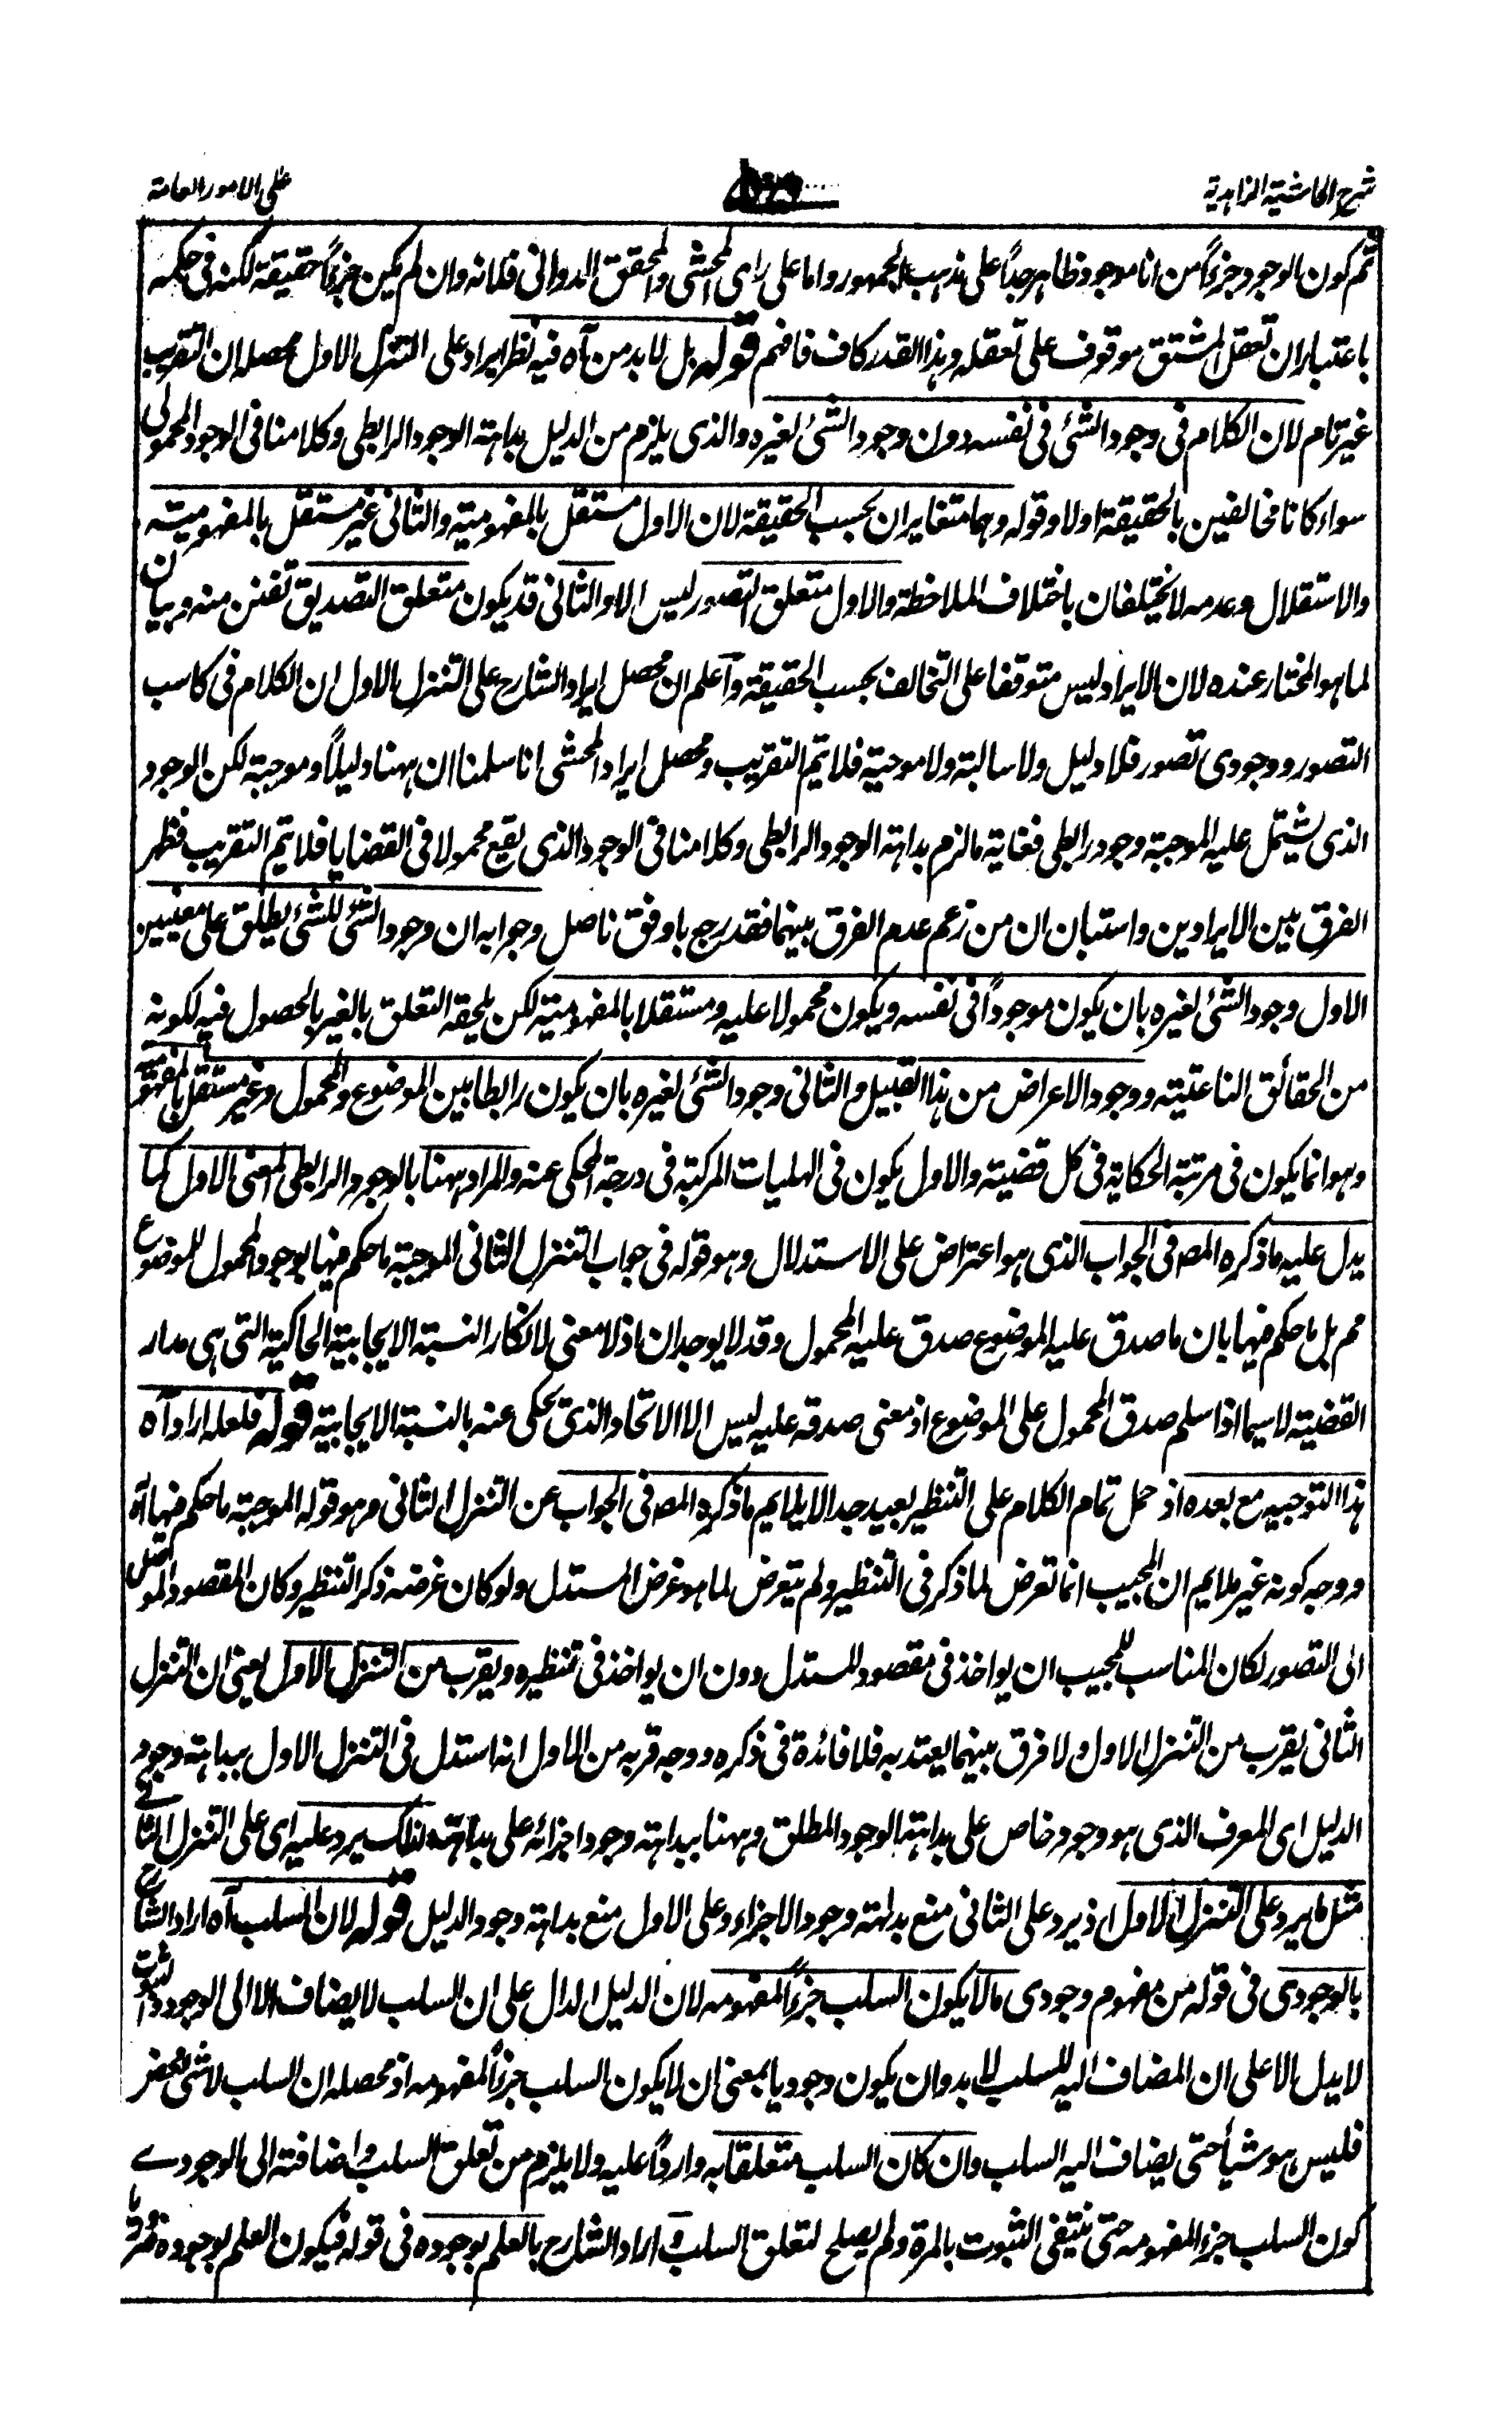 شرح الحاشية الزاهدية
على الامور العامة
ثم كون الوجود جزءاً من انا موجود ظاهر جداً على مذهب الجمهور واما على راى المحشى والمحقق الدوانى فلانه وان لم يكن جزءاً حقيقة لكنه فى حكمه
باعتبار ان تعقل المشتق موقوف على تعقله وهذا القدر كاف فافهم قوله بل لا بد من آه فيه نظر ايراد على التنزل الاول محصله ان التقريب
غير تام لان الكلام فى وجود الشئ فى نفسه دون وجود الشئ لغيره والذى يلزم من الدليل بداهة الوجود الرابطى وكلامنا فى الوجود المحمولى
سواء كانا مخالفين بالحقيقة اولا وقوله وهما متغايران بحسب الحقيقة لان الاول مستقل بالمفهومية والثانى غير مستقل بالمفهومية
والاستقلال وعدمه لا يختلفان باختلاف الملاحظة والاول متعلق التصور ليس الا والثانى قد يكون متعلق التصديق تفنن منه وبيان
لما هو المختار عنده لان الايراد ليس متوقفا على التخالف بحسب الحقيقة وآعلم ان محصل ايراد الشارح على التنزل الاول ان الكلام فى كاسب
التصور ووجودى تصور فلا دليل ولا سالبة ولا موجبة فلا يتم التقريب ومحصل ايراد المحشى انا سلمنا ان ههنا دليلاً وموجبة لكن الوجود
الذى يشتمل عليه الموجبة وجود رابطى فغاية ما لزم بداهة الوجود الرابطى وكلامنا فى الوجود الذى يقع محمولا فى القضايا فلا يتم التقريب فظهر
الفرق بين الايرادين واستبان ان من زعم عدم الفرق بينهما فقد رجع باوفق ناصل وجوابه ان وجود الشئ للشئ يطلق على معنيين
الاول وجود الشئ لغيره بان يكون موجوداً فى نفسه ويكون محمولا عليه ومستقلا بالمفهومية لكن يلحقه التعلق بالغير بالحصول فيه لكونه
من الحقائق الناعتية ووجود الاعراض من هذا القبيل والثانى وجود الشئ لغيره بان يكون رابطا بين الموضوع والمحمول وغير مستقل بالمفهومية
وهو انما يكون فى مرتبة الحكاية فى كل قضية والاول يكون فى الهليات المركبة فى درجة المحكى عنه والمراد ههنا بالوجود الرابطى المعنى الاول كما
يدل عليه ما ذكره المصـ فى الجواب الذى هو اعتراض على الاستدلال وهو قوله فى جواب التنزل الثانى الموجبة ما حكم فيها بوجود المحمول للموضوع
مم بل ما حكم فيها بان ما صدق عليه الموضوع صدق عليه المحمول وقد لا يوجدان اذ لا معنى لانكار النسبة الايجابية الحاكية التى هى مدار
القضية لا سيما اذا سلم صدق المحمول على الموضوع اذ معنى صدقه عليه ليس الا الاتحاد الذى يحكى عنه بالنسبة الايجابية قوله فلعله اراد آه
هذا التوجيه مع بعده اذ حمل تمام الكلام على التنظير بعيد جدا لا يلايم ما ذكره المصـ فى الجواب عن التنزل الثانى وهو قوله الموجبة ما حكم فيها آه
ووجه كونه غير ملايم ان المجيب انما تعرض لما ذكر فى التنظير ولم يتعرض لما هو غرض المستدل ولو كان غرضه ذكر التنظير وكان المقصود الموصل
الى التصور لكان المناسب للمجيب ان يواخذ فى مقصود المستدل دون ان يواخذ فى تنظيره ويقرب من التنزل الاول يعنى ان التنزل
الثانى يقرب من التنزل الاول ولا فرق بينهما يعتد به فلا فائدة فى ذكره ووجه قربه من الاول انه استدل فى التنزل الاول ببداهة وجود
الدليل اى المعرف الذى هو وجود خاص على بداهة الوجود المطلق وههنا ببداهة وجود اجزائه على بداهته لذلك سيرد عليه اى على التنزل الثانى
مثل ما يرد على التنزل الاول اذ يرد على الثانى منع بداهة وجود الاجزاء وعلى الاول منع بداهة وجود الدليل قوله لان السلب آه اراد الشارح
بالوجودى فى قوله من مفهوم وجودى ما لا يكون السلب جزءاً لمفهومه لان الدليل الدال على ان السلب لا يضاف الا الى الوجود والثبوت
لا يدل الا على ان المضاف اليه للسلب لا بد وان يكون وجوديا بمعنى ان لا يكون السلب جزءاً لمفهومه اذ محصله ان السلب لا شئ محض
فليس هو شيأ حتى يضاف اليه السلب وان كان السلب متعلقا به وارداً عليه ولا يلزم من تعلق السلب واضافته الى الوجودے
كون السلب جزءا لمفهومه حتى ينتفى الثبوت بالمرة ولم يصلح لتعلق السلب و اراد الشارح بالعلم بوجوده فى قوله فيكون العلم بوجوده ضروريا